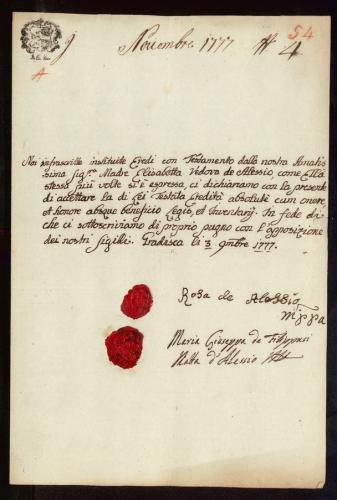 9 Novembre 1777 N 4
54
A
Noi infrascritte instituite Eredi con Testamento dalla nostra Amatis
sima Sig.ra Madre Elisabetta Vedova de Alessio, come Ella
stessa più volte si è espressa, ci dichiariamo con la presente
di accettare la di Lei Testata Eredità absolutè cum onere,
et honore absque beneficio Legis, et Inventarij. In fede di
che ci sottoscriviamo di proprio pugno con l'apposizione
dei nostri Sigilli. Tradasca li 3 9mbre 1777.
Rosa de Alessio
Maria Giuseppa de
Natta d'Alessio